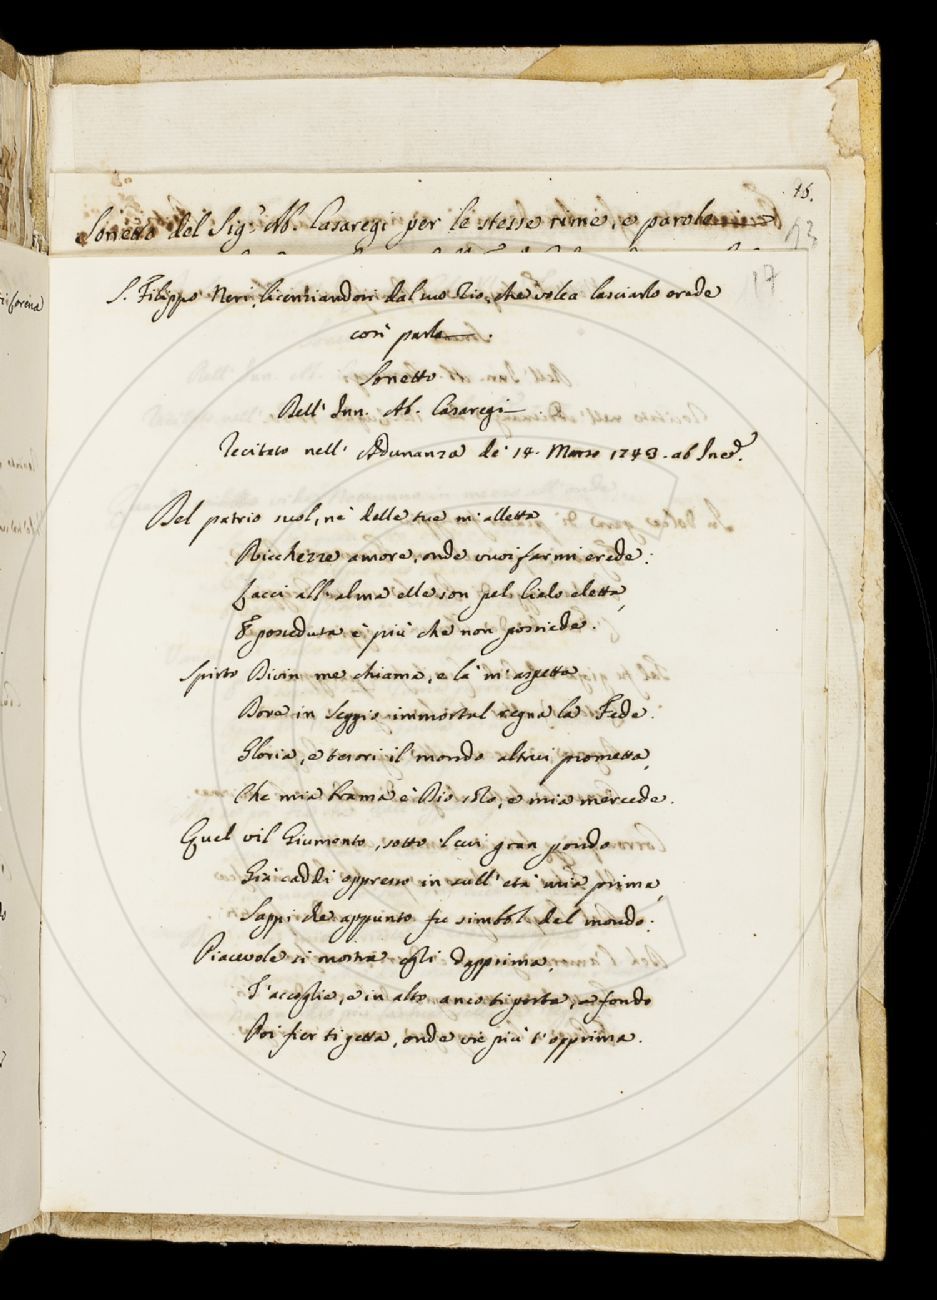 15.
Sonetto del Sig.r Ab. Casaregi per le stesse rime, e parole
13
17
S. Filippo Neri, licenziandosi dal suo Zio, che volea lasciarlo erede
così parla.
Sonetto
Dell' Inn. Ab. Casaregi
Recitato nell' Adunanza de' 14. Marzo 1743. ab Ined.
Bel patrio suol, nè delle tue m'alletta
Ricchezze amore, onde vuoi farmi erede:
Lacci all' alma elle son pel Cielo eletta,
E posseduta è più che non possiede.
Spirto Divin me chiama, e là m'aspetta
Dove in seggio immortal regna la Fede.
Gloria, e tesori il mondo altrui prometta,
Che mia brama è Dio solo, e mia mercede.
Quel vil Giumento, sotto l cui gran pondo
Già caddi oppresso in sull' età mia prima,
Sappi che appunto fu simbol del mondo:
Piacevole si mostra egli dapprima,
T'accoglie, e in alto anco ti porta, a fondo
Poi fier ti getta, onde vie più t'opprima.